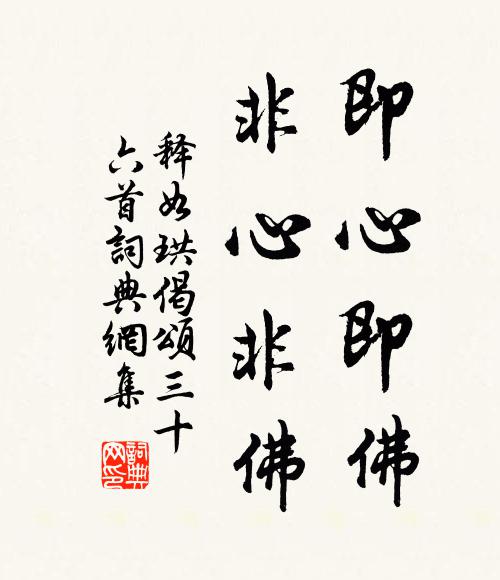 即心即佛
非心非佛
释如珙偈頌三十
六首詞典網集
詞典网印